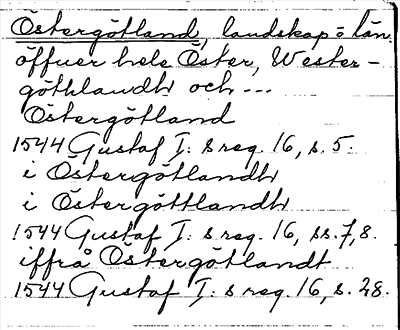 Östergötland, landskap o län.
öffuer hele Öster, Wester-
göthlandh och ---
Östergötland
1544 Gustaf I: s reg. 16, s. 5.
i Östergötlandh
i Östergöttlandh
1544 Gustaf I: s reg. 16, ss. 7, 8.
iffrå Östergötlandt
1544 Gustaf I: s reg. 16, s. 28.